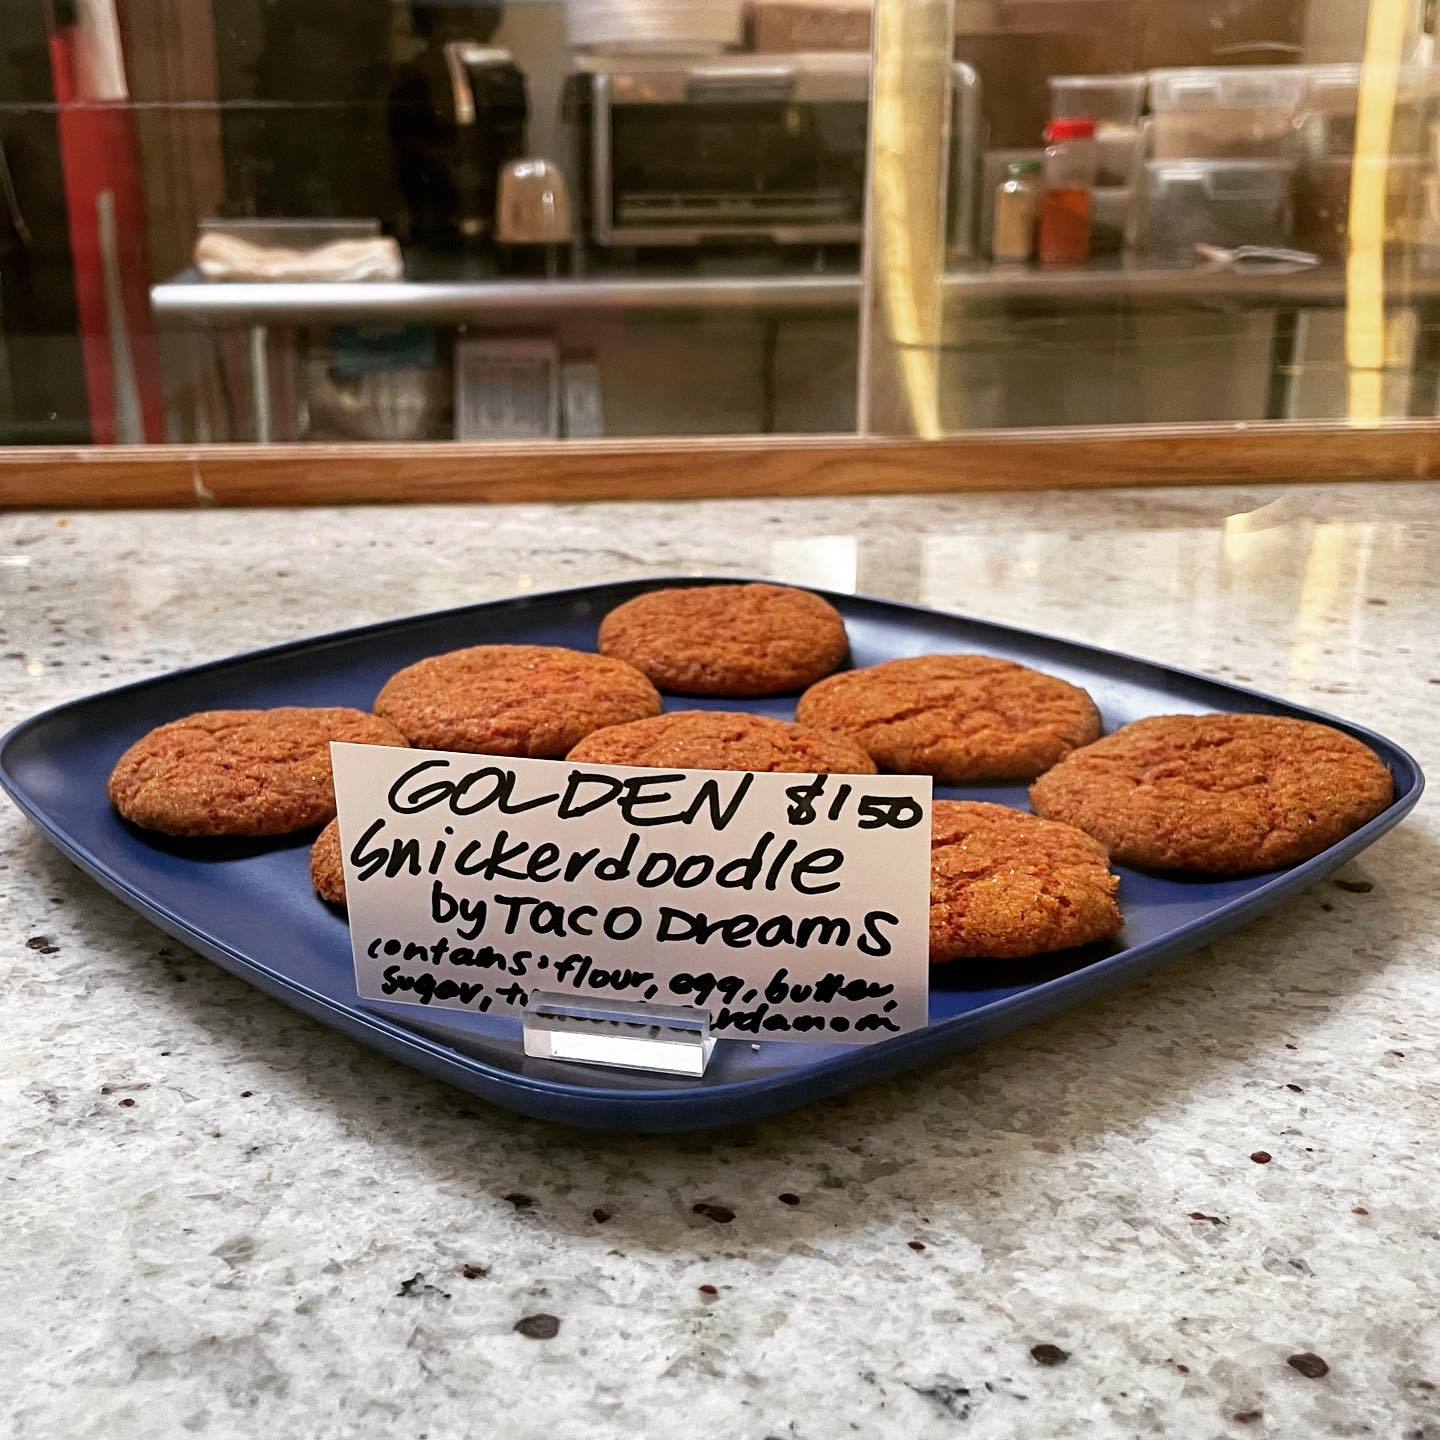 GOLDEN $1 50
Snickerdoodle
by Taco Dreams
contains: flour, egg, butter,
sugar,